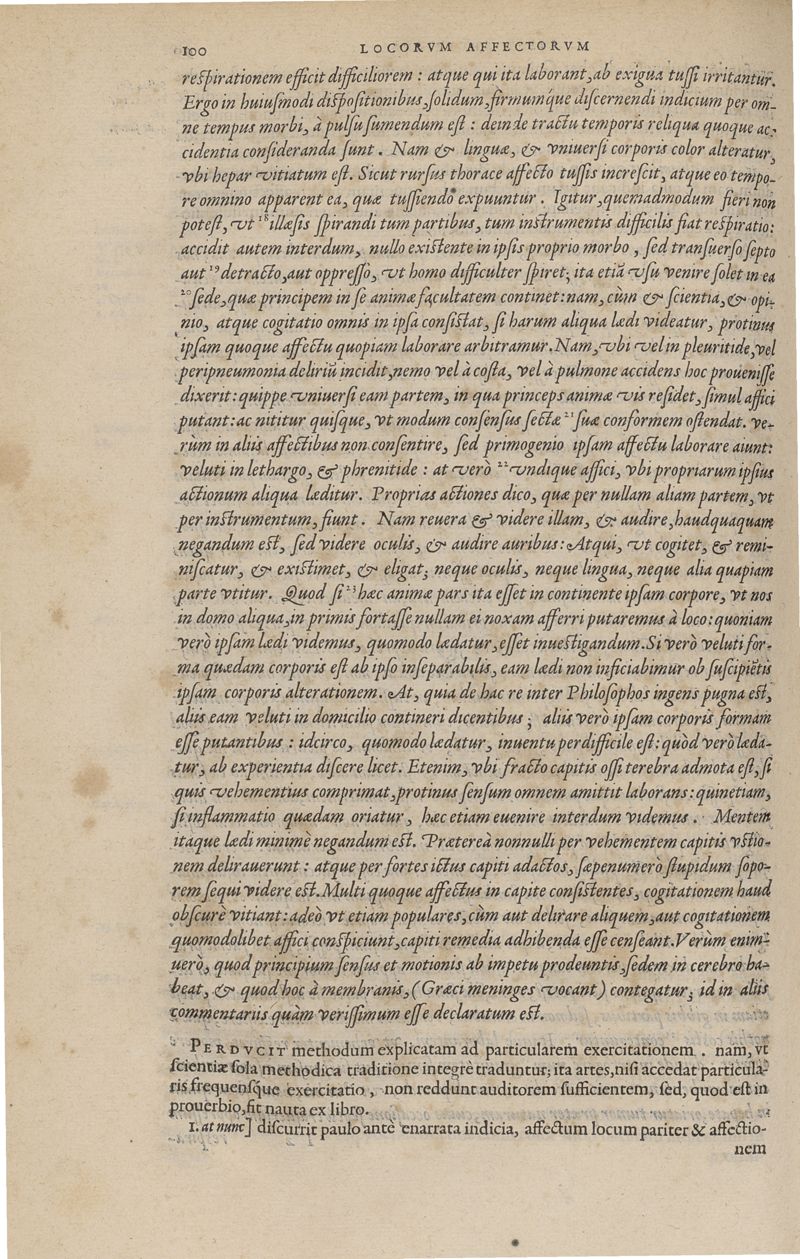 100 LOCORVM AFFECTORVM
respirationem efficit difficiliorem : atque qui ita laborant, ab exigua tussi irritantur.
Ergo in huiusmodi dispositionibus, solidum, firmumq́ue discernendi indicium per om-
ne tempus morbi, à pulsu sumendum est : deinde tractu temporis reliqua quoque ac-
cidentia consideranda sunt . Nam & linguæ, & vniuersi corporis color alteratur,
vbi hepar vitiatum est. Sicut rursus thorace affecto tussis increscit, atque eo tempo-
re omnino apparent ea, quæ tussiendo expuuntur . Igitur, quemadmodum fieri non
potest, vt ¹⁸ illæsis spirandi tum partibus, tum instrumentis difficilis fiat respiratio:
accidit autem interdum, nullo existente in ipsis proprio morbo , sed transuerso septo
aut ¹⁹ detracto, aut oppresso, vt homo difficulter spiret; ita etiã vsu venire solet in ea
²⁰ sede, quæ principem in se animæ facultatem continet: nam, cùm & scientia, & opi-
nio, atque cogitatio omnis in ipsa consistat, si harum aliqua lædi videatur, protinus
ipsam quoque affectu quopiam laborare arbitramur. Nam, vbi vel in pleuritide, vel
peripneumonia deliriũ incidit, nemo vel à costa, vel à pulmone accidens hoc prouenisse
dixerit: quippe vniuersi eam partem, in qua princeps animæ vis residet, simul affici
putant: ac nititur quisque, vt modum consensus sectæ ²¹ suæ conformem ostendat. Ve-
rùm in aliis affectibus non consentire, sed primogenio ipsam affectu laborare aiunt:
veluti in lethargo, & phrenitide : at verò ²² vndique affici, vbi propriarum ipsius
actionum aliqua læditur. Proprias actiones dico, quæ per nullam aliam partem, vt
per instrumentum, fiunt . Nam reuera & videre illam, & audire, haudquaquam
negandum est, sed videre oculis, & audire auribus: Atqui, vt cogitet, & remi-
niscatur, & existimet, & eligat; neque oculis, neque lingua, neque alia quapiam
parte vtitur. Quod si ²³ hæc animæ pars ita esset in continente ipsam corpore, vt nos
in domo aliqua, in primis fortasse nullam ei noxam afferri putaremus à loco: quoniam
verò ipsam lædi videmus, quomodo lædatur, esset inuestigandum. Si verò veluti for-
ma quædam corporis est ab ipso inseparabilis, eam lædi non inficiabimur ob suscipiẽtis
ipsam corporis alterationem. At, quia de hac re inter Philosophos ingens pugna est,
aliis eam veluti in domicilio contineri dicentibus ; aliis verò ipsam corporis formam
esse putantibus : idcirco, quomodo lædatur, inuentu perdifficile est: quòd verò læda-
tur, ab experientia discere licet. Etenim, vbi fracto capitis ossi terebra admota est, si
quis vehementius comprimat, protinus sensum omnem amittit laborans: quinetiam,
si inflammatio quædam oriatur, hæc etiam euenire interdum videmus . Mentem
itaque lædi minimè negandum est. Prætereà nonnulli per vehementem capitis vstio-
nem delirauerunt : atque per fortes ictus capiti adactos, sæpenumerò stupidum sopo-
rem sequi videre est. Multi quoque affectus in capite consistentes, cogitationem haud
obscurè vitiant: adeò vt etiam populares, cùm aut delirare aliquem, aut cogitationem
quomodolibet affici conspiciunt, capiti remedia adhibenda esse censeant. Verùm enim-
uerò, quod principium sensus et motionis ab impetu prodeuntis, sedem in cerebro ha-
beat, & quod hoc à membranis, (Græci meninges vocant) contegatur; id in aliis
commentariis quàm verissimum esse declaratum est.
PERDVCIT methodum explicatam ad particularem exercitationem . nam, vt
scientiæ sola methodica traditione integrè traduntur; ita artes, nisi accedat particula-
ris frequensq́ue exercitatio , non reddunt auditorem sufficientem, sed, quod est in
prouerbio, fit nauta ex libro.
1. at nunc] discurrit paulo antè enarrata indicia, affectum locum pariter & affectio-
nem